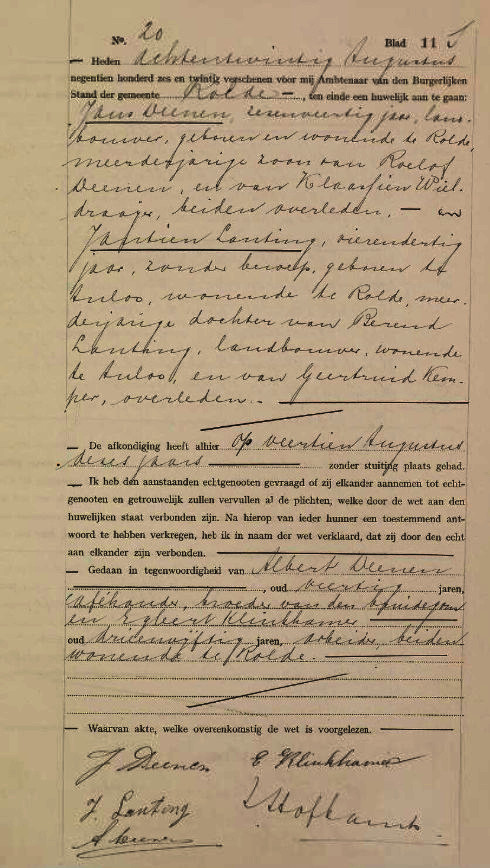 No. 20 Blad 11
— Heden achtentwintig Augustus
negentien honderd zes en twintig verschenen vóór mij Ambtenaar van den Burgerlijken
Stand der gemeente Rolde —, ten einde een huwelijk aan te gaan:
Jans Deenen, zevenveertig jaar, land-
bouwer, geboren en wonende te Rolde,
meerderjarige zoon van Roelof
Deenen, en van Klaassien Wiel-
draaijer, beiden overleden. — en
Jantien Lanting, vierendertig
jaar, zonder beroep, geboren te
Anloo, wonende te Rolde, meer-
derjarige dochter van Berend
Lanting, landbouwer, wonende
te Anloo, en van Geertruid Kem-
per, overleden. —
— De afkondiging heeft alhier op veertien Augustus
dezes jaars — zonder stuiting plaats gehad.
— Ik heb den aanstaanden echtgenooten gevraagd of zij elkander aannemen tot echt-
genooten en getrouwelijk zullen vervullen al de plichten, welke door de wet aan den
huwelijken staat verbonden zijn. Na hierop van ieder hunner een toestemmend ant-
woord te hebben verkregen, heb ik in naam der wet verklaard, dat zij door den echt
aan elkander zijn verbonden.
— Gedaan in tegenwoordigheid van Albert Deenen
, oud veertig jaren,
caféhouder, broeder van den bruidegom
en Egbert Klinkhamer
oud drieenvijftig jaren, arbeider, beiden
wonende te Rolde. —
— Waarvan akte, welke overeenkomstig de wet is voorgelezen.
J Deenen E Klinkhamer
J. Lanting
A Deenen